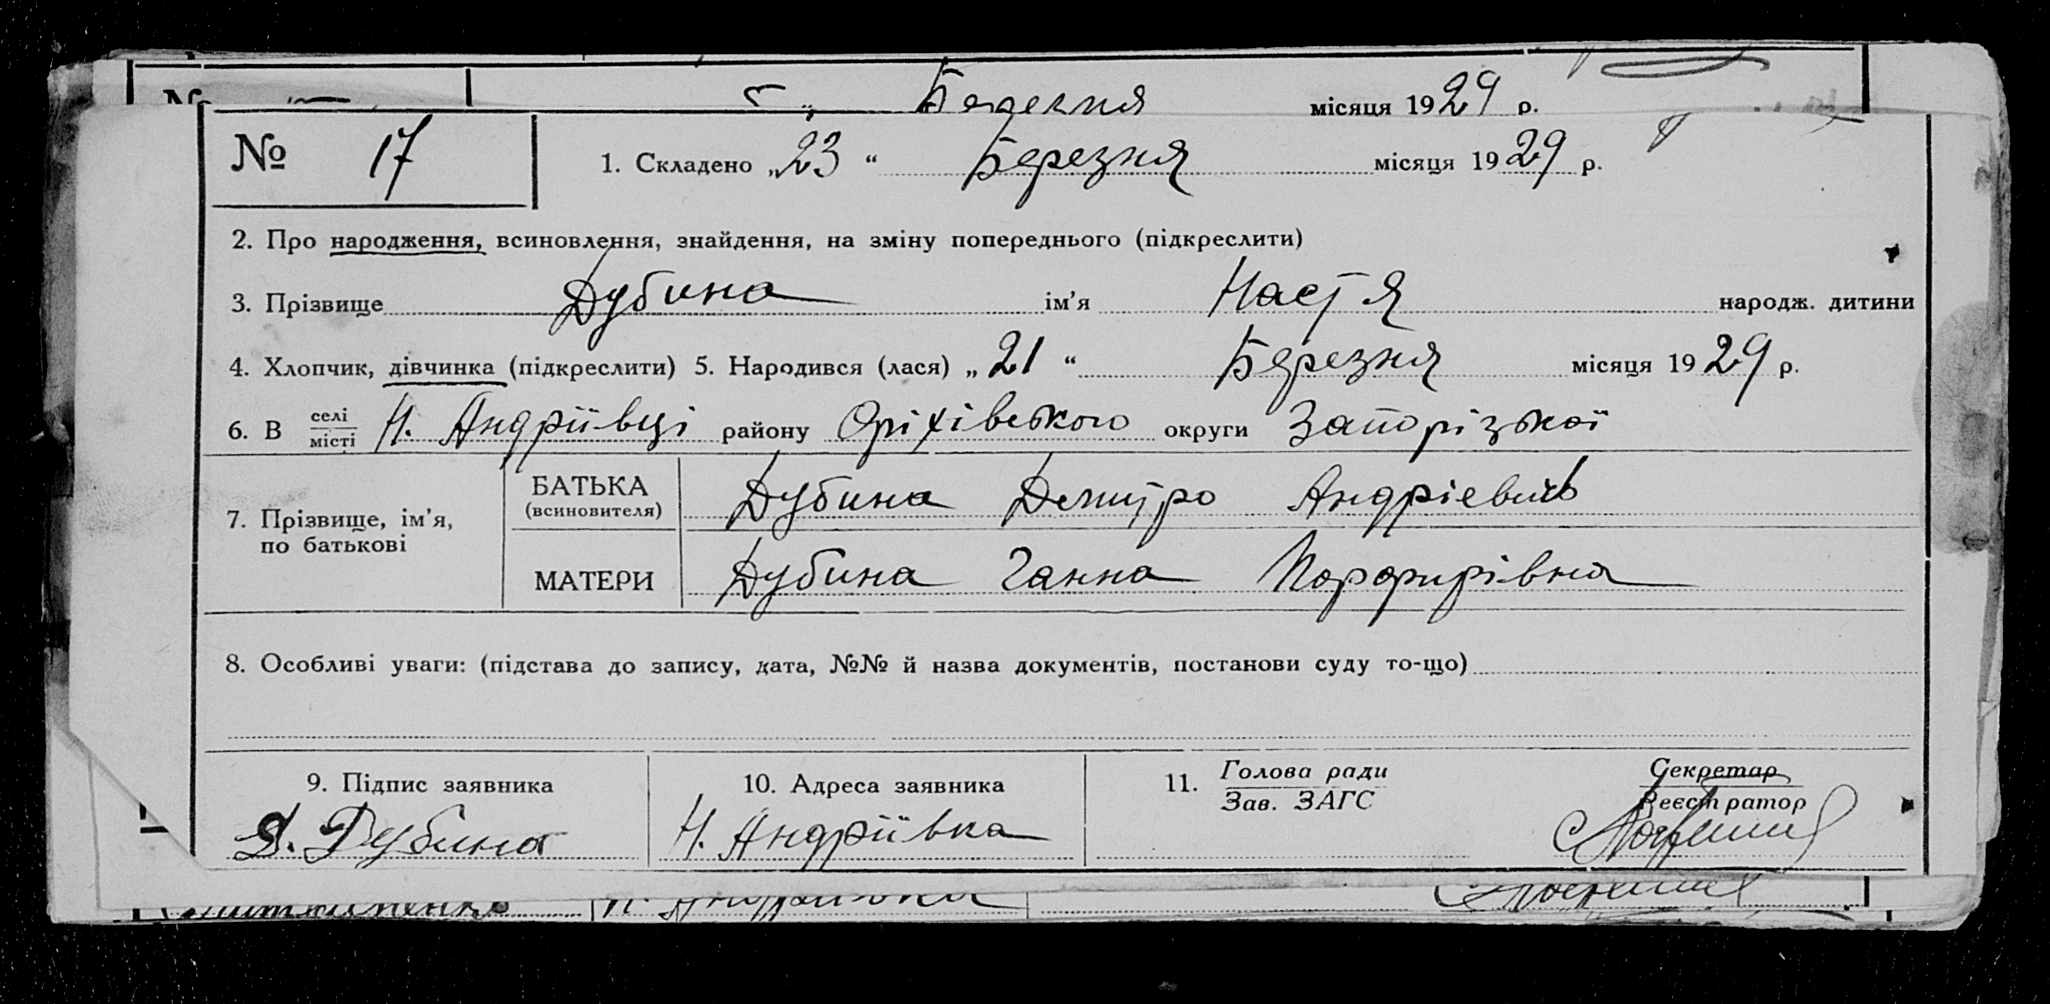 Березня місяця 1929 р.
№ 17 1. Складено „23“ Березня місяця 1929 р.
2. Про народження, всиновлення, знайдення, на зміну попереднього (підкреслити)
3. Прізвище Дубина ім'я Настя народж. дитини
4. Хлопчик, дівчинка (підкреслити) 5. Народився (лася) „21“ Березня місяця 1929 р.
6. В селі Н. Андріівці району Оріхівського округи Запорізькоі
місті
7. Прізвище, ім'я,
по батькові
БАТЬКА
(всиновителя)
Дубина Дмитро Андріевичь
МАТЕРИ Дубина Ганна Порфирівна
8. Особливі уваги: (підстава до запису, дата, №№ й назва документів, постанови суду то-що)
9. Підпис заявника
Д. Дубина
10. Адреса заявника
Н. Андріівка
11. Голова ради
Зав. ЗАГС
Секретар
Реєстратор